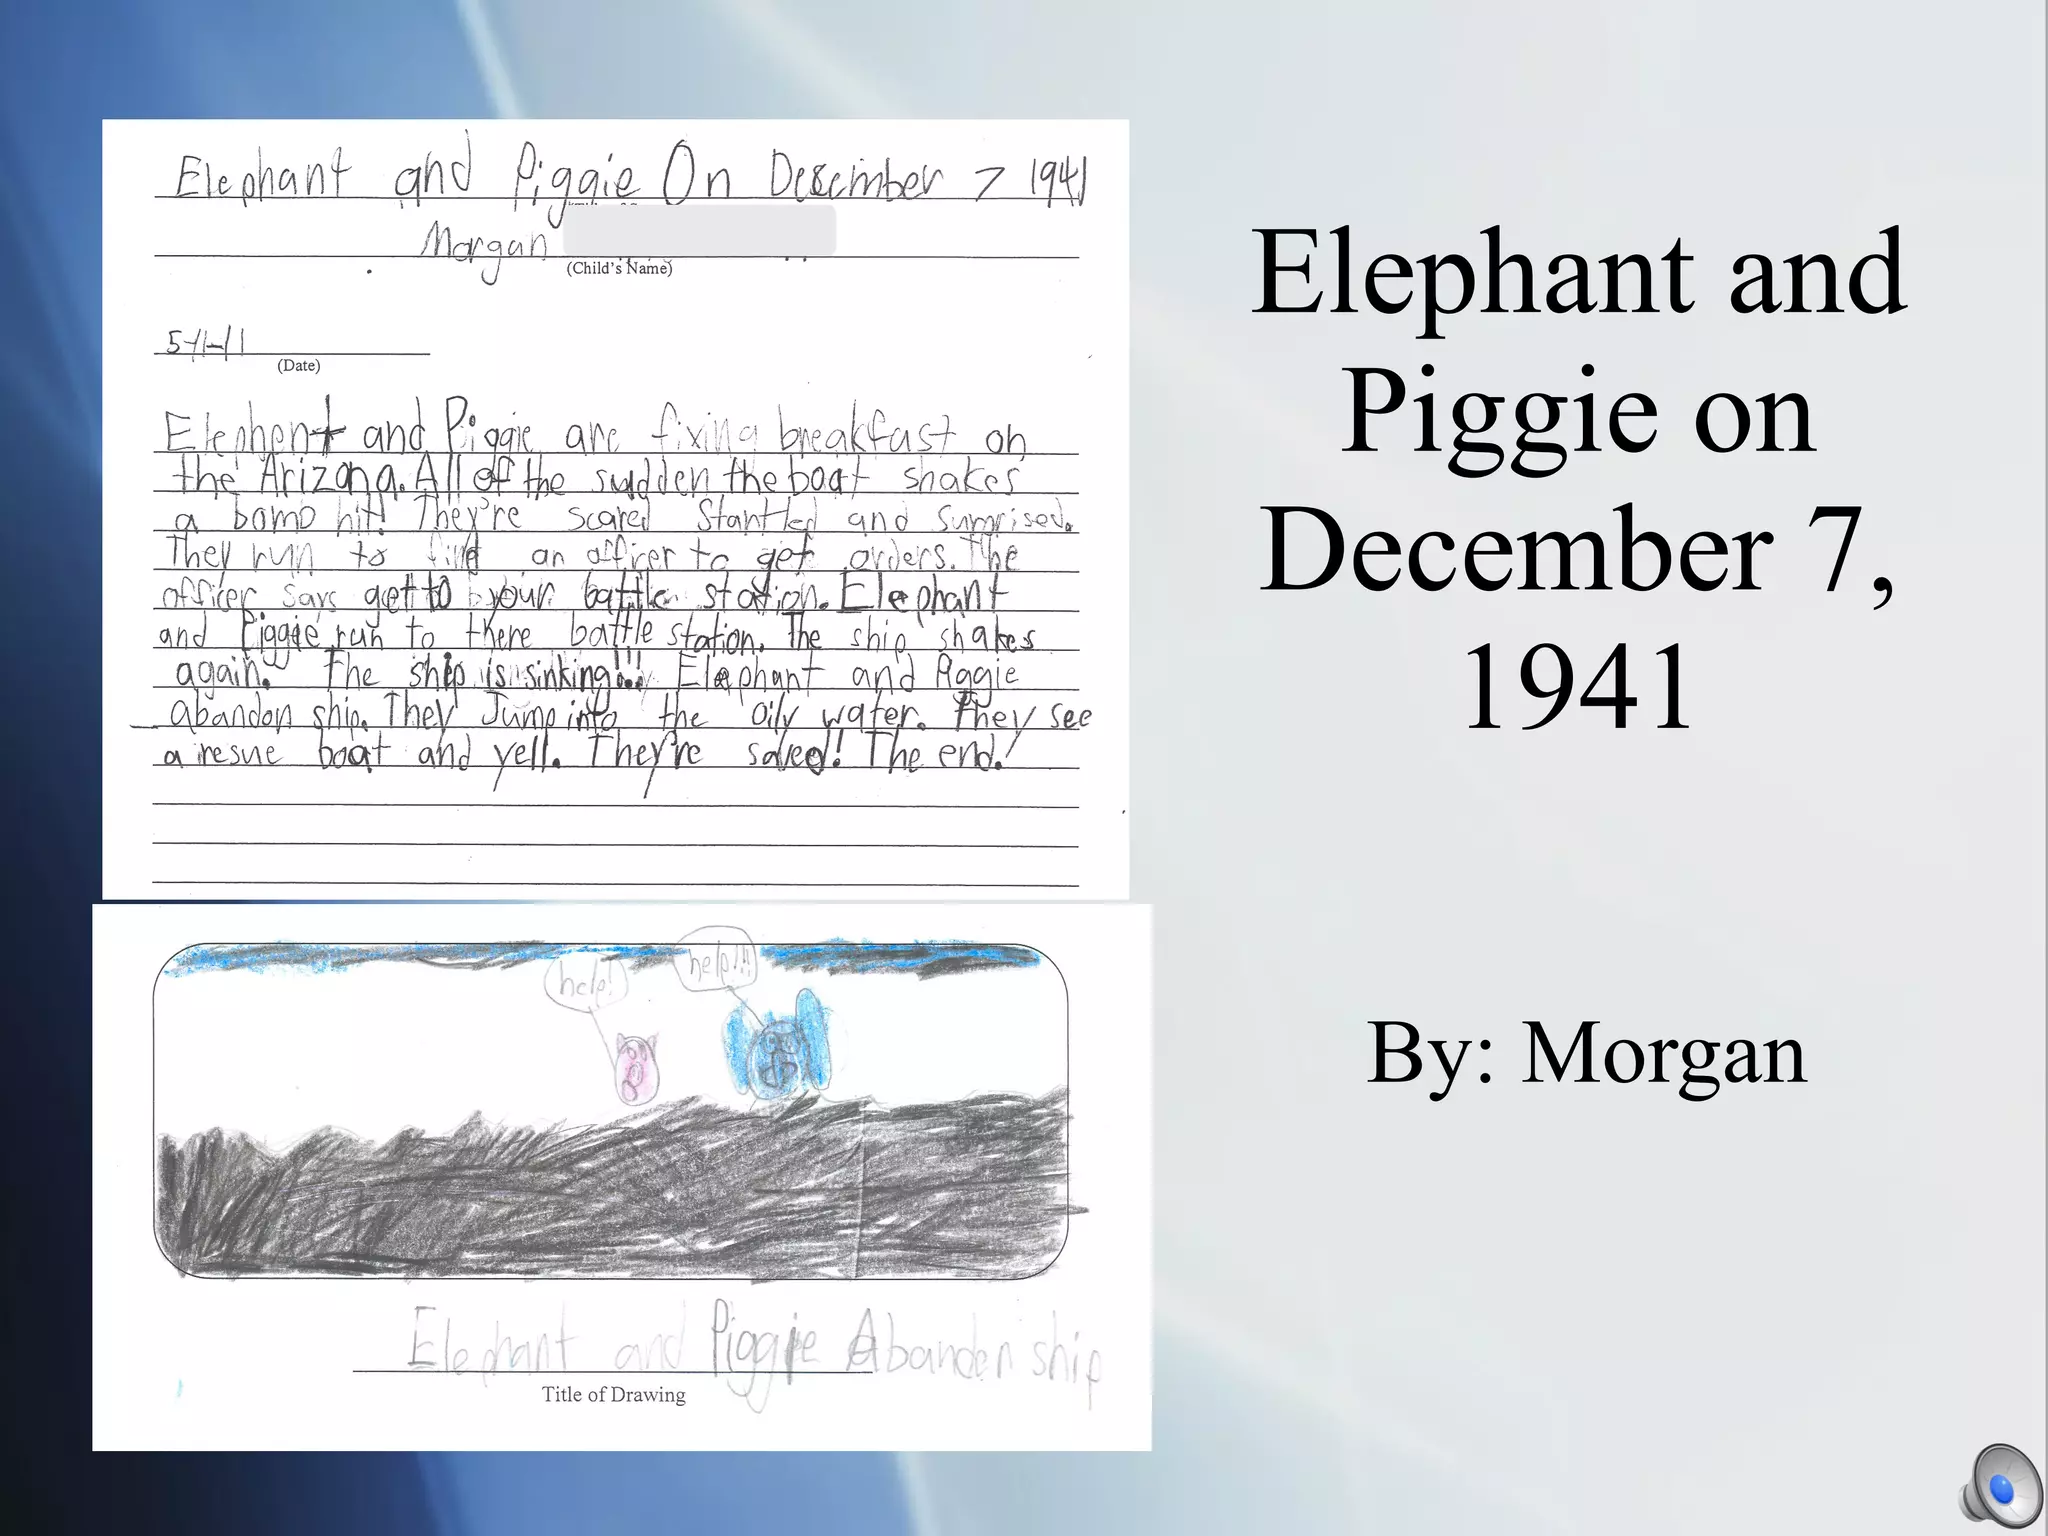 Elephant and Piggie On Descimber 7 1941
Morgan
(Child's Name)
5-11-11
(Date)
Elephent and Piggie are fixing breakfast on
the Arizona. All of the sudden the boat shakes
a bomb hit! They're scared startled and surprised.
They run to find an officer to get orders. The
officer says get to your battle station. Elephant
and Piggie run to there battle station. The ship shakes
again. The ship is sinking!!! Elephant and Piggie
abandon ship. They Jump into the oily water. They see
a resue boat and yell. They're saved! The end!
help!
help!!!
Elephant and Piggie Abanden ship
Title of Drawing
Elephant and
Piggie on
December 7,
1941
By: Morgan